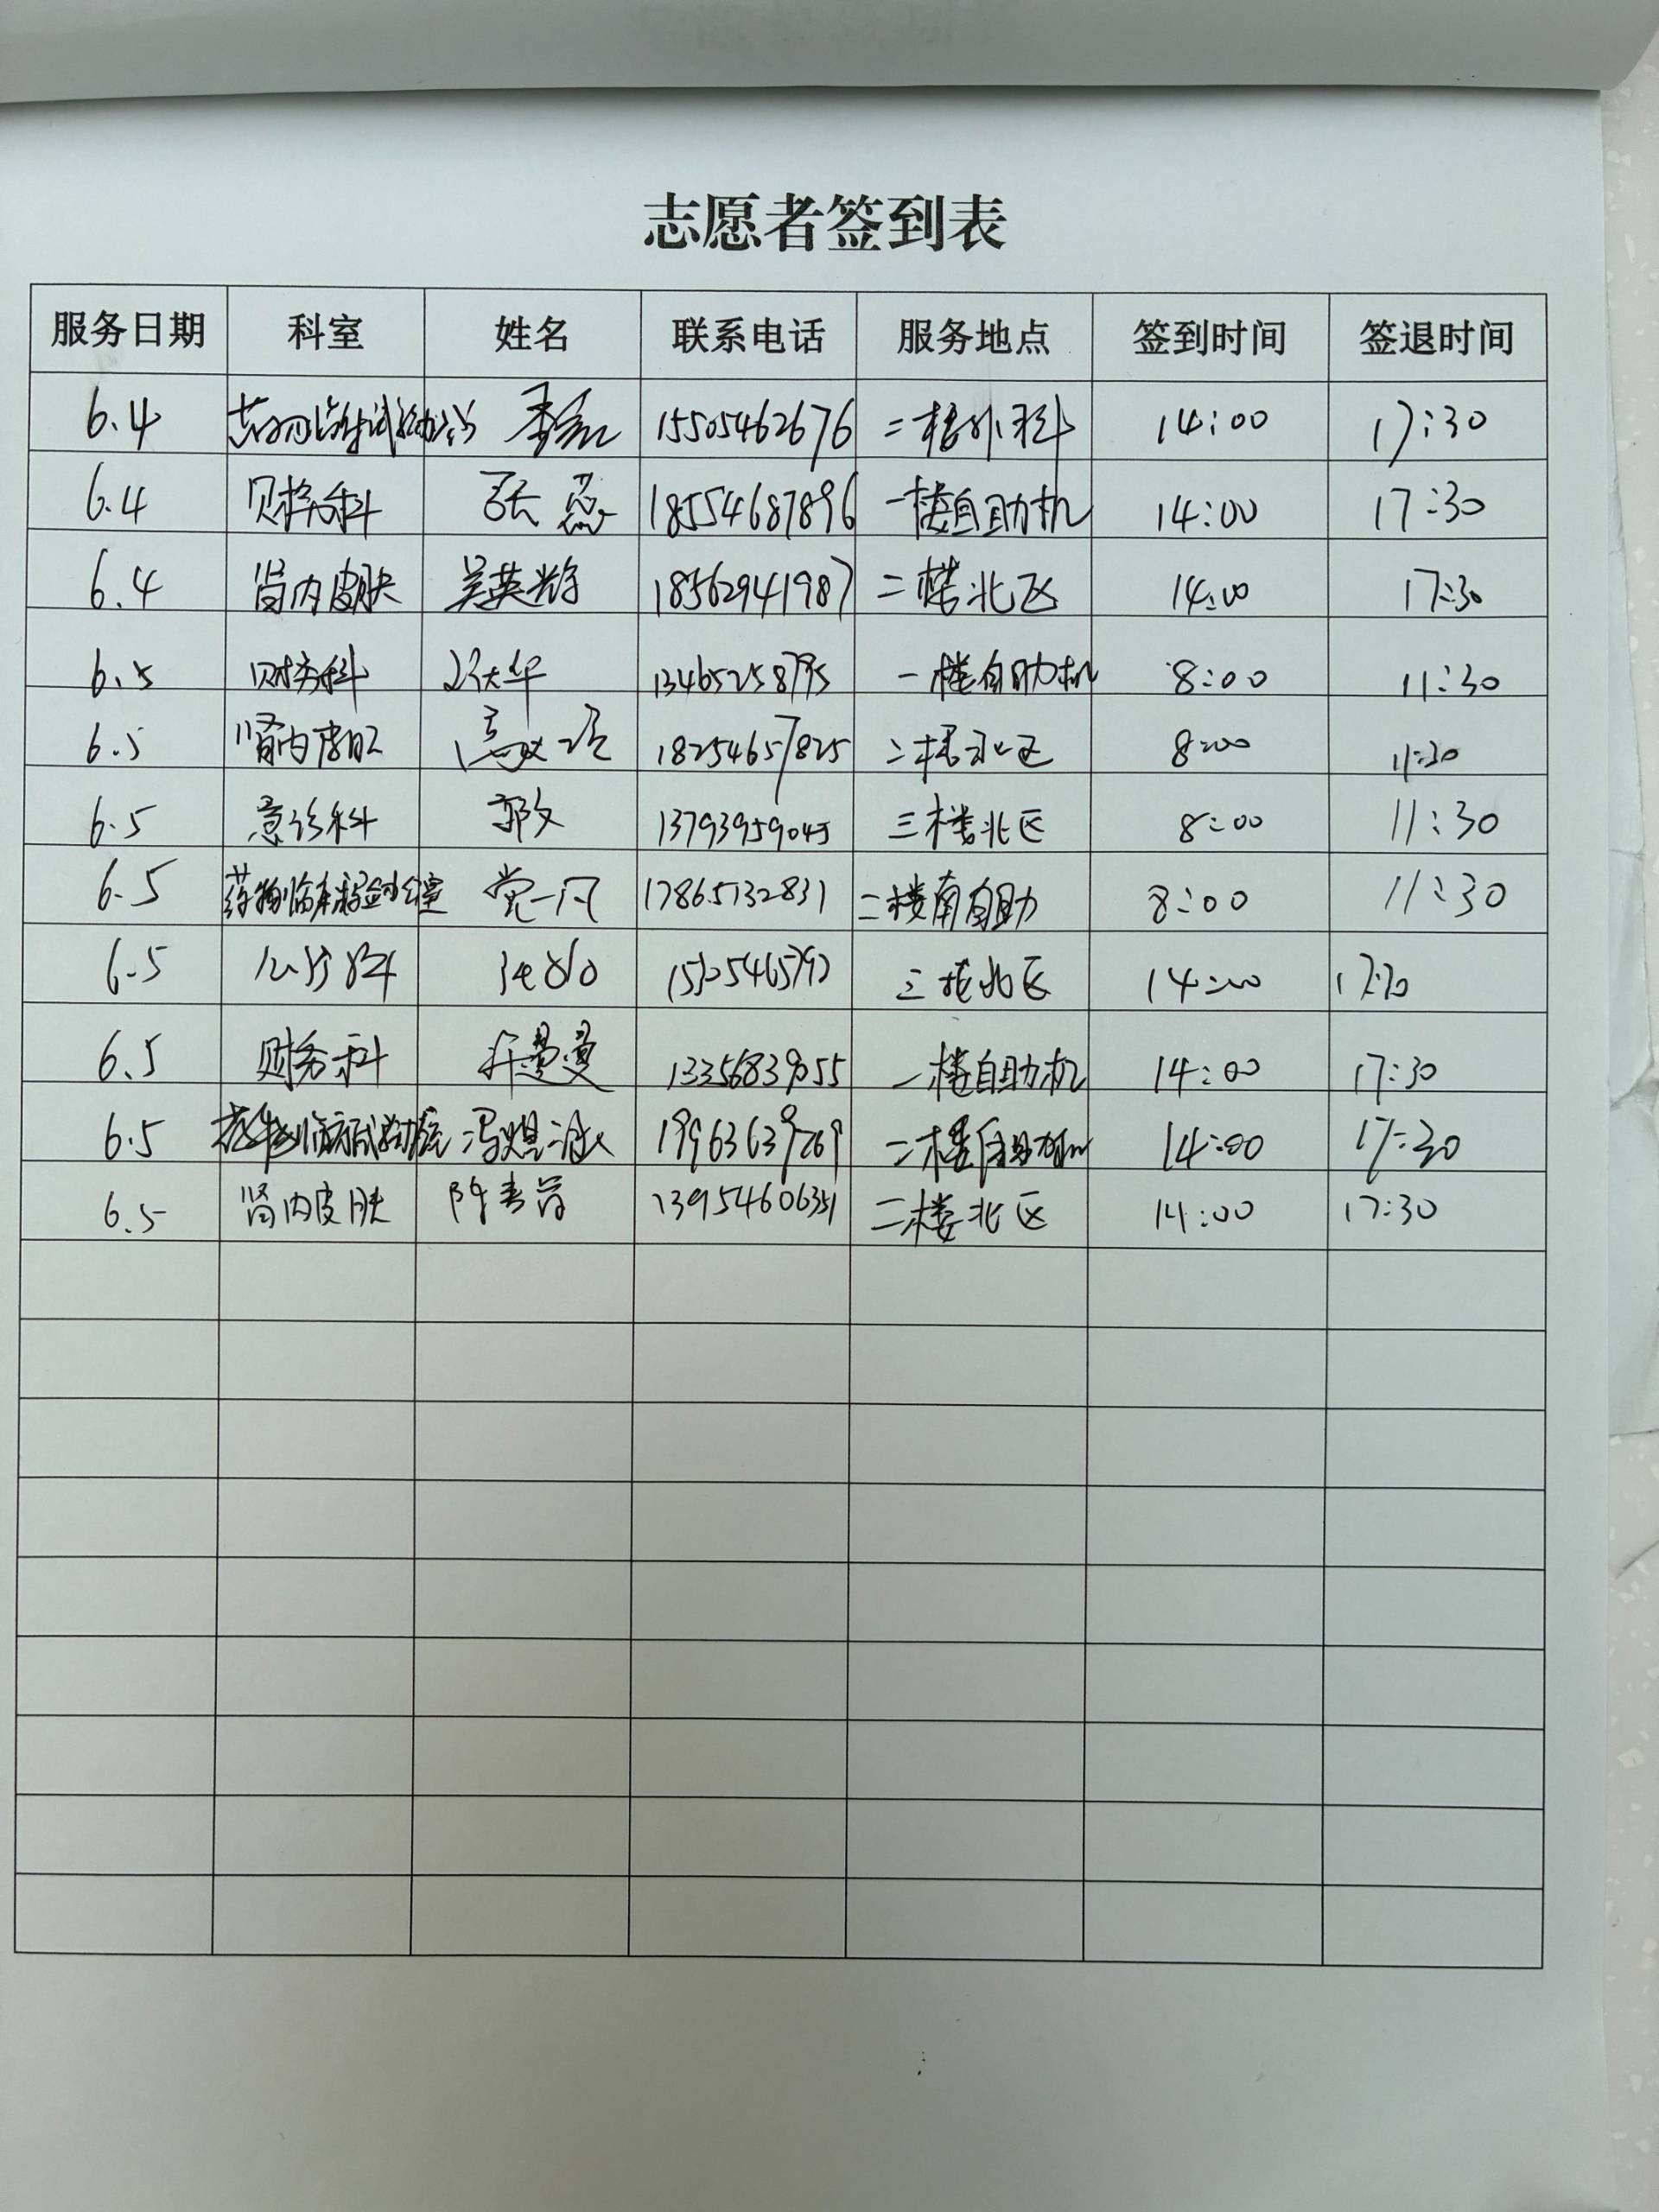 志愿者签到表
服务日期 科室 姓名 联系电话 服务地点 签到时间 签退时间
6.4 药物临床试验办公室 15505462676 二楼外科 14:00 17:30
6.4 财务科 张蕊 18554687896 一楼自助机 14:00 17:30
6.4 肾内皮肤 吴英辉 18562941987 二楼北区 14:00 17:30
6.5 财务科 13465258795 一楼自助机 8:00 11:30
6.5 肾内皮肤 18254657825 二楼北区 8:00 11:30
6.5 急诊科 郭文 13793959045 三楼北区 8:00 11:30
6.5 药物临床试验办公室 党一凡 17865132831 二楼南自助 8:00 11:30
6.5 三楼北区 14:00 17:30
6.5 财务科 曼曼 13356839055 一楼自助机 14:00 17:30
6.5 药物临床试验办公室 19963639269 二楼自助机 14:00 17:30
6.5 肾内皮肤 13954606351 二楼北区 14:00 17:30